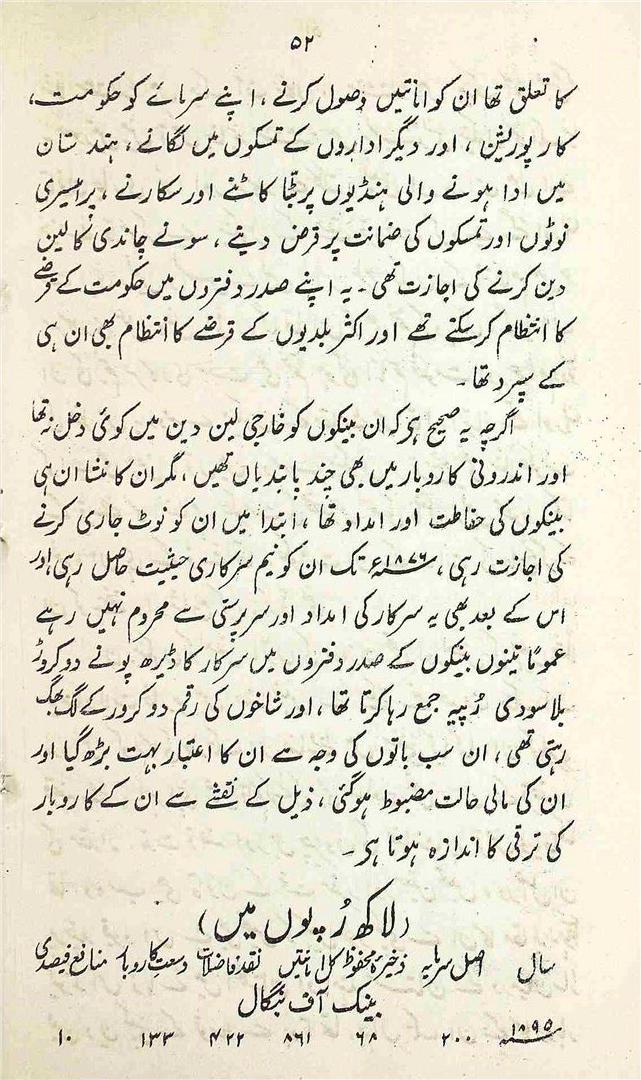 ۵۲
کا تعلق تھا ان کو امانتیں وصول کرنے ، اپنے سرمائے کو حکومت،
کارپوریشن ، اور دیگر اداروں کے تمسکوں میں لگانے ، ہندستان
میں ادا ہونے والی ہنڈیوں پر بٹّا کاٹنے اور سکارنے ، پرامیسری
نوٹوں اور تمسکوں کی ضمانت پر قرض دینے ، سونے چاندی کا لین
دین کرنے کی اجازت تھی ۔ یہ اپنے صدر دفتروں میں حکومت کے قرضے
کا انتظام کرسکتے تھے اور اکثر بلدیوں کے قرضے کا انتظام بھی ان ہی
کے سپرد تھا ۔
اگرچہ یہ صحیح ہو کہ ان بینکوں کو خارجی لین دین میں کوئی دخل نہ تھا
اور اندرونی کاروبار میں بھی چند پابندیاں تھیں ، مگر ان کا منشا ان ہی
بینکوں کی حفاظت اور امداد تھا ، ابتدا میں ان کو نوٹ جاری کرنے
کی اجازت رہی ، ۱۸۷۶ء تک ان کو نیم سرکاری حیثیت حاصل رہی اور
اس کے بعد بھی یہ سرکار کی امداد اور سرپرستی سے محروم نہیں رہے
عموماً تینوں بینکوں کے صدر دفتروں میں سرکار کا ڈیڑھ پونے دو کروڑ
بلا سودی رُپیہ جمع رہا کرتا تھا ، اور شاخوں کی رقم دو کرور کے لگ بھگ
رہتی تھی ، ان سب باتوں کی وجہ سے ان کا اعتبار بہت بڑھ گیا اور
ان کی مالی حالت مضبوط ہوگئی ، ذیل کے نقشے سے ان کے کاروبار
کی ترقی کا اندازہ ہوتا ہو ۔
(لاکھ رُپیوں میں)
سال اصل سرمایہ ذخیرہ محفوظ کل امانتیں نقد فاضلات وسعتِ کاروبار منافع فیصدی
بینک آف بنگال
۱۸۹۵ء ۲۰۰ ۶۸ ۸۶۱ ۴۲۲ ۱۳۳ ۱۰